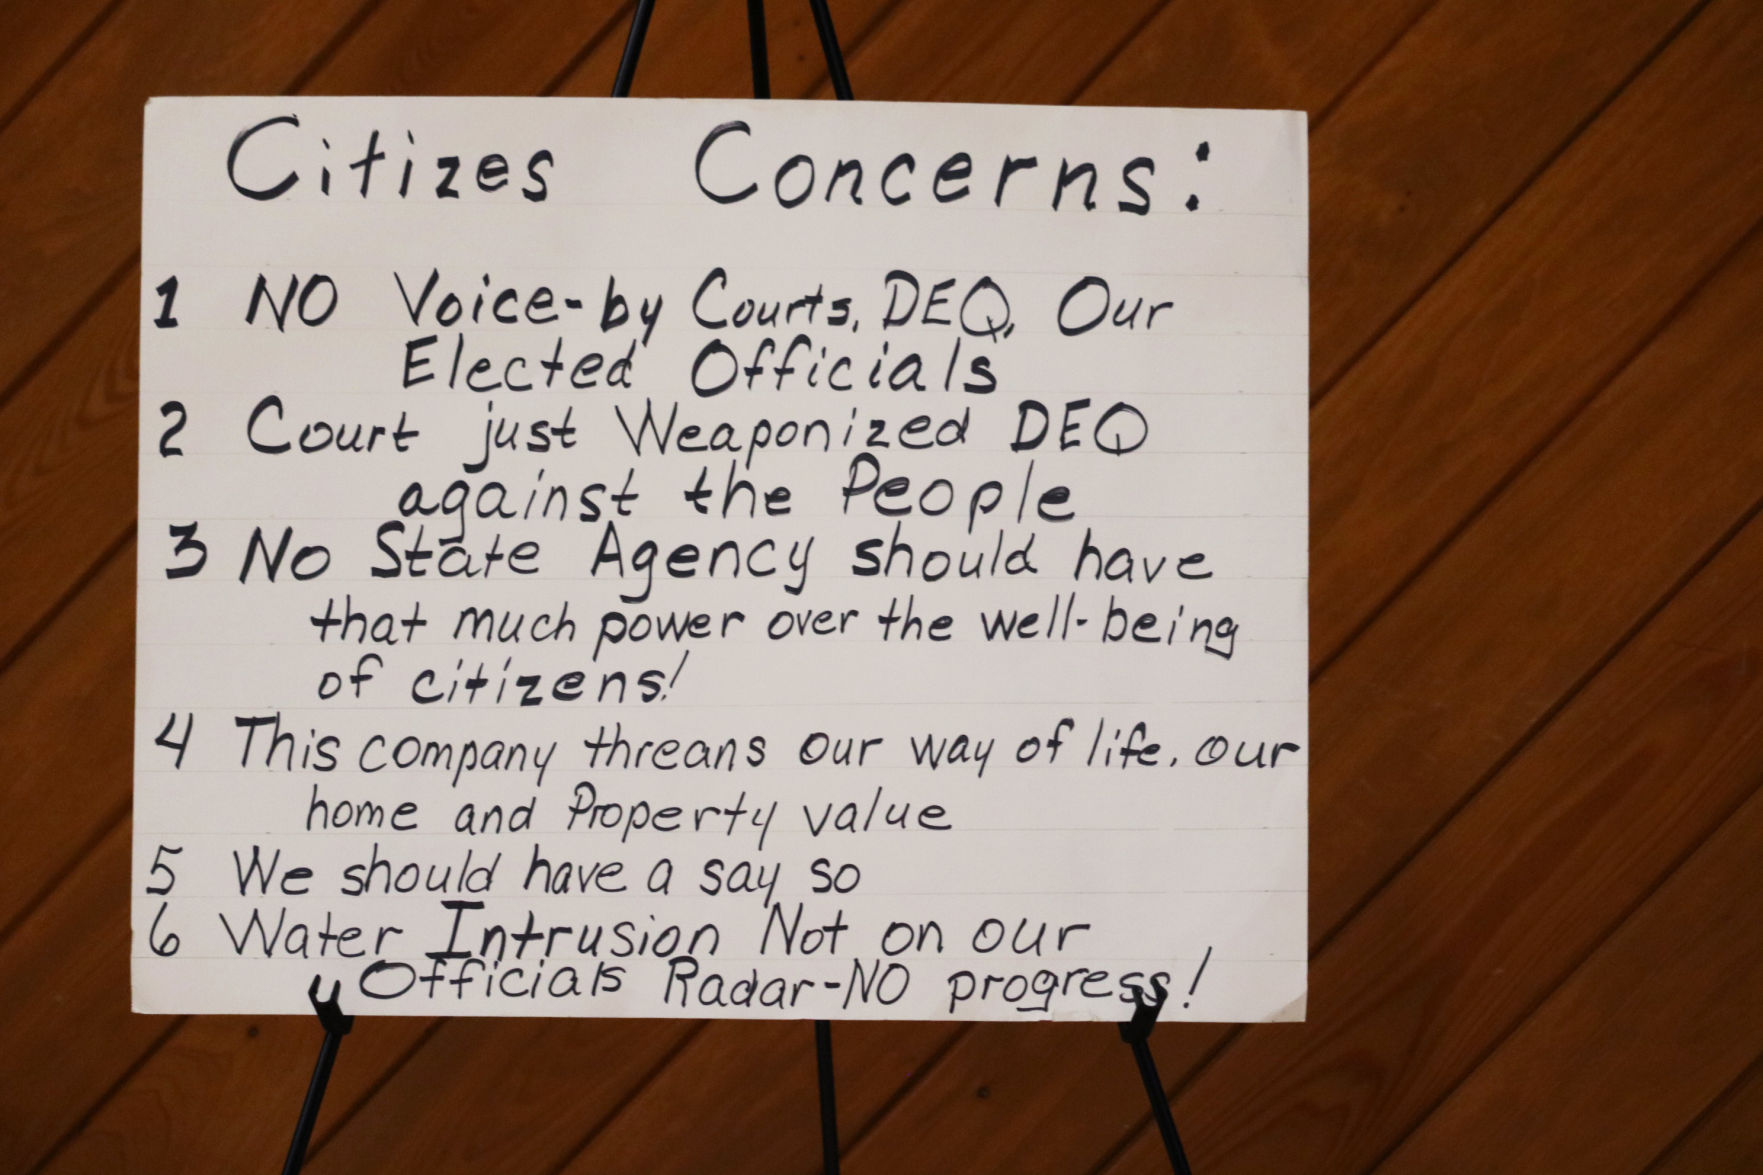 Citizes Concerns:
1 NO Voice-by Courts, DEQ, Our
Elected Officials
2 Court just Weaponized DEQ
against the People
3 No State Agency should have
that much power over the well-being
of citizens!
4 This company threans our way of life. our
home and Property value
5 We should have a say so
6 Water Intrusion Not on our
Officials Radar-NO progress!